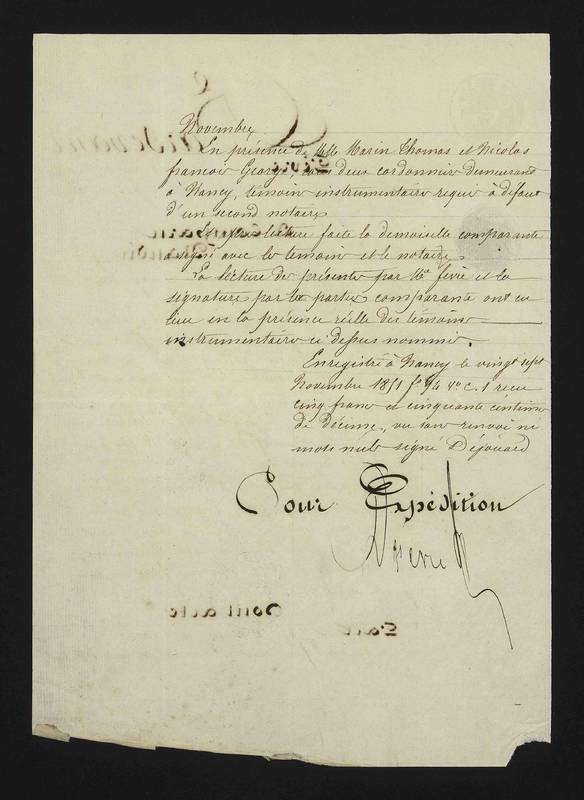 Novembre,
En présence de Mr Marin Thomas et Nicolas
francois George, tous deux cordonnier demeurant
à Nancy, témoin instrumentaire requi à défaut
d'un second notaire
Et après lecture faite la demoiselle comparante
a signé avec les temoin et le notaire,
La lecture des présente par Me ferie et la
signature par les partie comparante ont eu
lieu en la présence réelle des témoins
instrumentaire ci dessus nommé.
Enregistré à Nancy le vingt sept
Novembre 1851 fo 94 Vo C. 1 recu
cinq franc et cinquante centime
de décime, vu san renvoi ne
mots nuls signé Dejouard
Pour Expédition